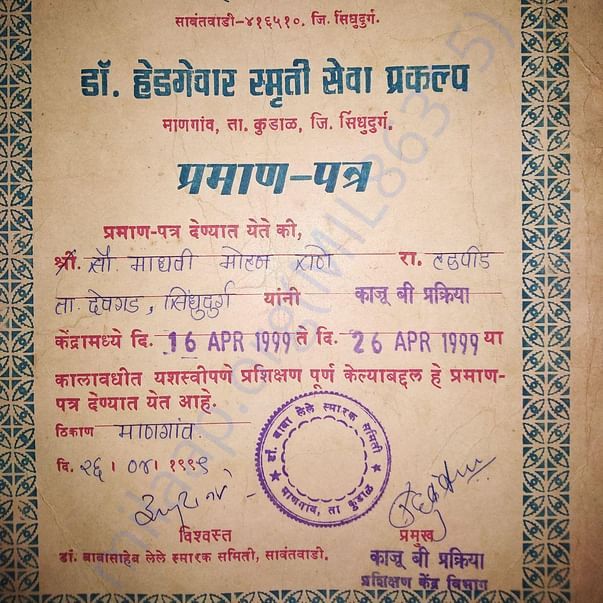 सावंतवाडी-४१६५१०, जि. सिंधुदुर्ग.
डॉ. हेडगेवार स्मृती सेवा प्रकल्प
माणगांव, ता. कुडाळ, जि. सिंधुदुर्ग.
प्रमाण-पत्र
प्रमाण-पत्र देण्यात येते की,
श्री. सौ. माधवी मोहन राणे रा. टकपीड
ता. देवगड, सिंधुदुर्ग यांनी काजू बी प्रक्रिया
केंद्रामध्ये दि. 16 APR 1999 ते दि. 26 APR 1999 या
कालावधीत यशस्वीपणे प्रशिक्षण पूर्ण केल्याबद्दल हे प्रमाण-
पत्र देण्यात येत आहे.
ठिकाण माणगांव.
दि. २६ । ०४ । १९९९
डॉ. बाबा लेले स्मारक समिती
माणगांव, ता कुडाळ
विश्वस्त
डॉ. बाबासाहेब लेले स्मारक समिती, सावंतवाडी.
प्रमुख
काजू बी प्रक्रिया
प्रशिक्षण केंद्र विभाग